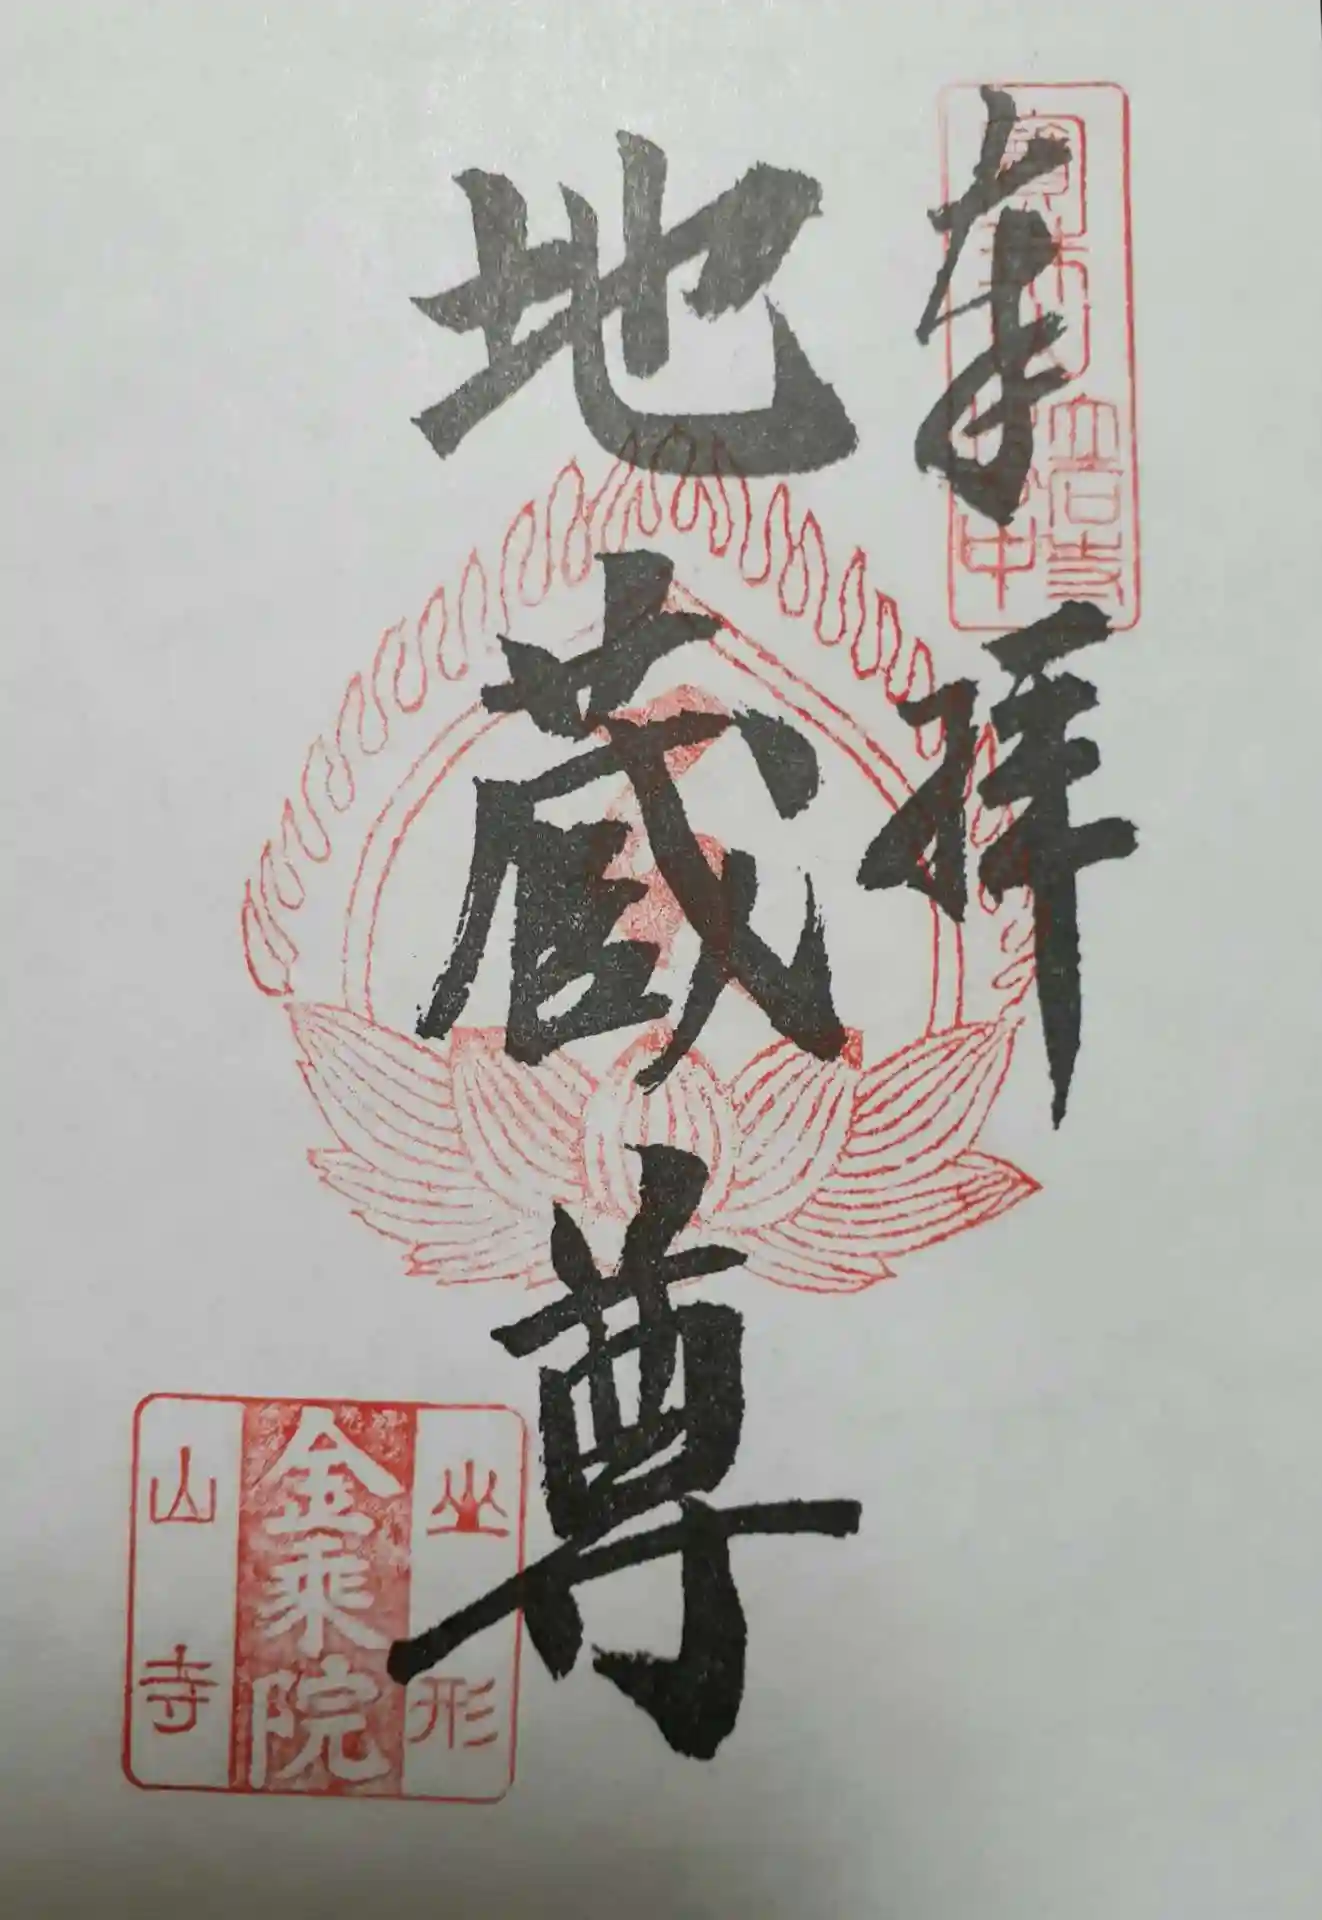 奉拝
地蔵尊
山形
山寺
金乗院